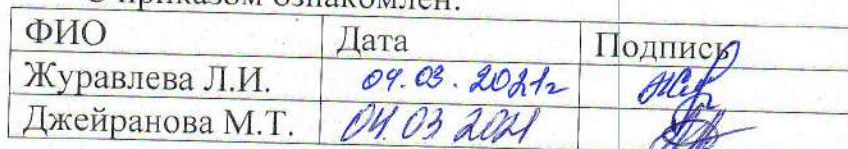 С приказом ознакомлен:
ФИО Дата Подпись
Журавлева Л.И. 04.03.2021г
Джейранова М.Т. 04.03 2021